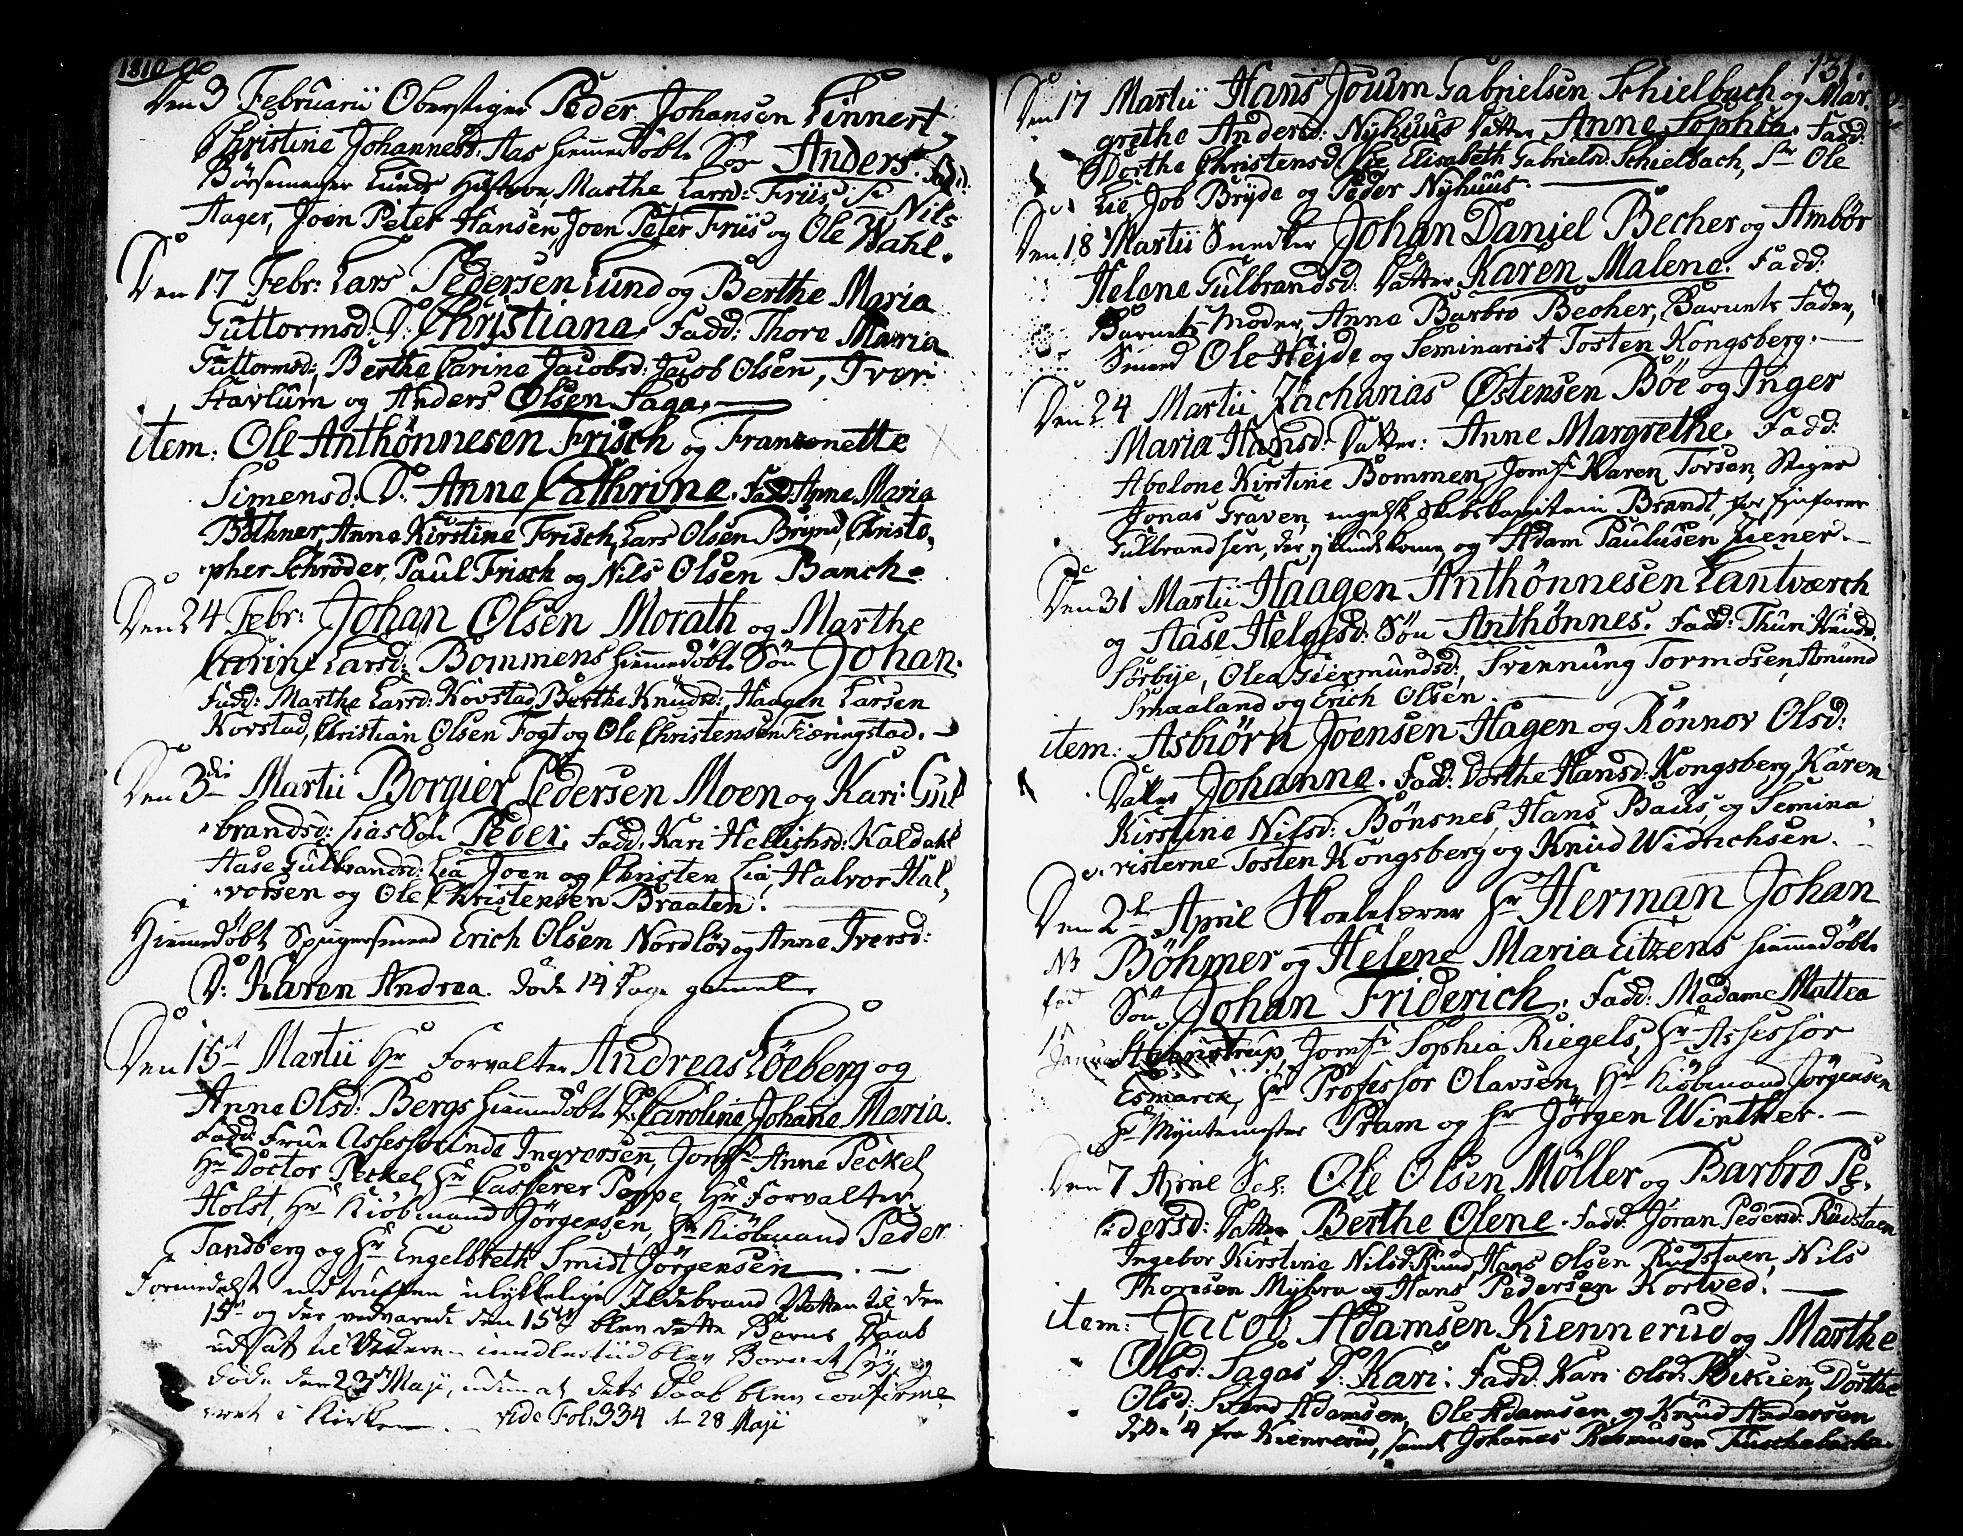 1810
Den 3 Februarii Oberstiger Peder Johansen Linnert
Christine Johannesd: Aas hiemmedøbt Søn Anders. Fadd:
Lunds Hustrue, Marthe Larsd: Friis, Nils
Aager, Joen Peter Hansen, Joen Peter Friis og Ole Wahl.
Den 17 Febr: Lars Pedersen Lund og Berthe Maria
Guttormsd: D: Christiana, Fadd: Thore Maria
Guttormsd:, Berthe Carine Jacobsd: Jacob Olsen, Iver
Stavlum og Anders Olsen Saga.
item: Ole Anthønnesen Frisch og Fransonette
Simensd: D: Anne Cathrine. Fadd: Anne Maria
Bøthner, Anne Kirstine Frisch, Lars Olsen Brynd, Christo-
pher Schrøder, Paul Frisch og Nils Olsen Banch.
Den 24 Febr: Johan Olsen Morath og Marthe
Carine Larsd: Bommens hiemmedøbt Søn Johan.
Fadd: Marthe Larsd: Kovstad, Berthe Knudsd:, Haagen Larsen
Kovstad, Christian Olsen Fogt og Ole Christensen Fiæringstad.
Den 3die Martii Borgier Pedersen Moen og Kari Gul
brandsd: Lias Søn Peder. Fadd: Kari Hellichsd: Kaldahl
Aase Gulbrandsd: Lia Joen og Christen Lia, Halvor Hal-
vorsen og Ole Christensen Braaten.
Hiemmedøbt Spigersmed Erich Olsen Nordløv og Anne Iversd:
D: Karen Andrea. døde 14 Dage gammel
Den 15de Martii Hr Forvalter Andreas Løeberg og
Anne Olsd: Bergs hiemmedøbt D: Caroline Johane Maria.
Fadd: Frue Assessorinde Ingversen, Jomfr Anne Peckel
Hr Doctor Peckel, Hr Casserer Peppe, Hr Forvalter
Holst, Hr Kiøbmand Jørgensen, Hr Kiøbmand Peder
Tandberg og Hr Engelbreth Smidt Jørgensen
Formedelst indtruffen ulykkelige Ildebrand Natten til den
15de og der vedvarede den 15de blev dette Barns Daab
udsat til imidlertiid blev Barnet syg og
døde den 23de Maji, uden at dets Daab blev confirme-
ret i Kirken. vide Fol: 334 den 28 Maji
131.
Den 17 Martii Hans Jouum Gabrielsen Schielbach og Mar-
grethe Andersd: Nyhuus Datter Anne Sophia. Fadd:
Dorthe Christensd: Lie Elisabeth Gabrielsd: Schielbach, Ole
Lie Job Bryde og Peder Nyhuus.
Den 18 Martii Snedker Johan Daniel Becher og Ambør
Helene Gulbrandsd: Datter Karen Malene. Fadd:
Barnets Moder, Anne Barbro Becher, Barnets Fader,
Smed Ole Hejde og Seminarist Tosten Kongsberg.
Den 24 Martii Zacharias Østensen Bøe og Inger
Maria Hansd: Datter: Anne Margrethe. Fadd:
Abelone Kirstine Bommen, Jomfr Karen Torsen, Stiger
Jonas Graven, engelsk Skibskapitein Brandt, for
Gulbrandsen, der ej kunde komme, og Adam Paulusen Liener.
Den 31 Martii Haagen Anthønnesen Lantværch
og Aase Helgesd: Søn Anthønnes. Fadd: Thuri Knudsd:
Sørbye, Olea Giermundsd:, Svennung Tormosen, Amund
Smaaland og Erich Olsen.
item: Asbiørn Joensen Hagen og Rønnov Olsd:
Datter Johanne. Fadd: Dorthe Hansd: Kongsberg, Karen
Kirstine Nilsd: Bønsnes, Hans Baus, og Semina
risterne Tosten Kongsberg og Knud Widrichsen.
Den 2de April Skolelærer Hr Herman Johan
NB Bøhmer og Helene Maria Eitzens hiemmedøbt
fød Søn Johan Friderich. Fadd: Madame Mattea
15 Januar Stennstrup, Jomfr Sophia Riegels, Hr Assessor
Esmarck, Hr Professor Olavsen, Hr Kiøbmand Jørgensen
Hr Myntemester Pram og Hr Jørgen Winther.
Den 7 April Ole Olsen Møller og Barbro Pe-
dersd: Datter Berthe Olene. Fadd: Jøran Pedersd: Rudstaen
Ingebor Kirstine Nilsd: Ruud, Hans Olsen Rudstaen, Nils
Thoresen Myhra og Hans Pedersen Kortved.
item: Jacob Adamsen Kiennerud og Marthe
Olsd: Sagas D: Kari. Fadd: Kari Olsd: Bikien, Dorthe
Olsd: Svend Adamsen, Ole Adamsen, og Knud Andersen
4 fra Kiennerud, samt Johanes Rasmusen